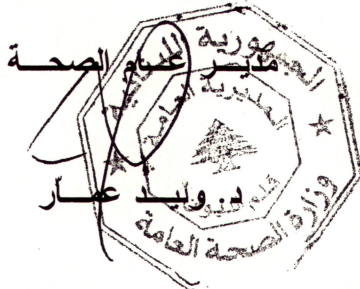 مدير عام الصحة
د. وليد عمّار
الجمهورية اللبنانية
المديرية العامة
وزارة الصحة العامة